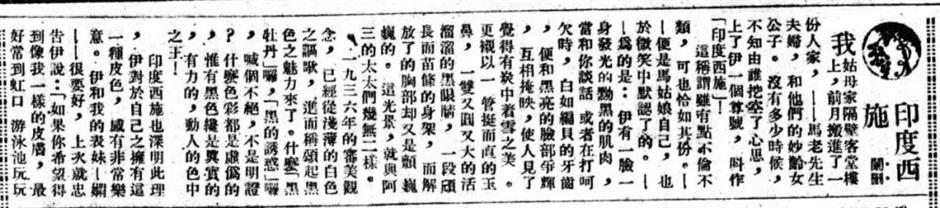 印度西施
我姑母家隔壁客堂樓
上,前月搬進了一
份人家,——馬老先生
夫婦,和他們的妙齡女
公子。沒有多少時候,
不知由誰挖空了心思,
上了伊一個尊號,叫作
「印度西施」!
這稱謂雖有點不倫不
類,可也恰如其份。——
——便是馬姑娘自己,也
於微笑中默認了的。——
——爲的是:伊有一臉一
身發光的黝黑的肌肉,
當和你談話 或者在打呵
欠時,白如編貝的牙齒
,便和黑亮的臉部爭輝
,互相掩映,使人見了
覺得有炭中着雪之美。
更襯以一管挺而直的玉
鼻,一雙又圓又大的活
溜溜的黑眼睛,一段頎
長而苗條的身架,而解
放了的胸部却又是顫巍
巍的。這光景,就與阿
三的太太們幾無二樣。
一九三六年的審美觀
念,已經從淺薄的白色
之謳歌,進而稱頌起黑
色之魅力來了。什麼「黑
牡丹」囉,「黑的誘惑」囉
,喊個不絕,不是明證
?什麼色彩都是虛僞的
,惟有黑色纔是眞實的
,有力的,動人的色中
之王!
印度西施也深明此理
,伊對於自己之擁有這
一種皮色,感有非常樂
意。伊和我的表妹——嫻
——很要好,上次就忠
告伊說:「如果你希望得
到像我一樣的皮膚,最
好常到虹口 游泳池玩玩